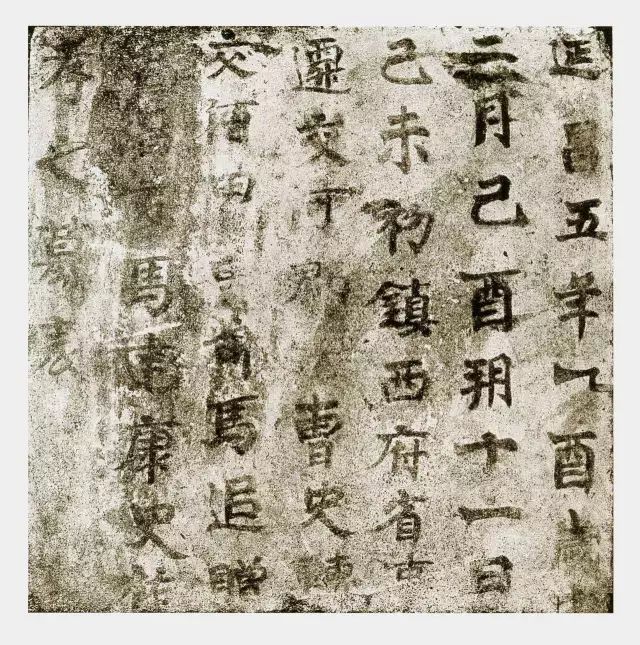 延昌五年乙酉歲
二月己酉朔十一日
己未初鎮西府省事
遷交河郡曹史轉
交河田曹司馬追贈
馬建康史
孝之墓表